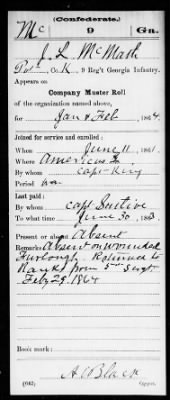 (Confederate.)
Mc 9 Ga.
J. L. McMath
Pvt, Co. K, 9 Reg't Georgia Infantry.
Appears on
Company Muster Roll
of the organization named above,
for Jan & Feb, 1864.
Joined for service and enrolled:
When June 11, 1861.
Where Americus Ga
By whom Capt King
Period War
Last paid:
By whom Capt
To what time June 30, 1863.
Present or absent Absent
Remarks: Absent on wounded
Furlough. Returned to
Ranks from 5th Sergt
Feby 29. 1864
Book mark:
A C Black
(642) Copyist.